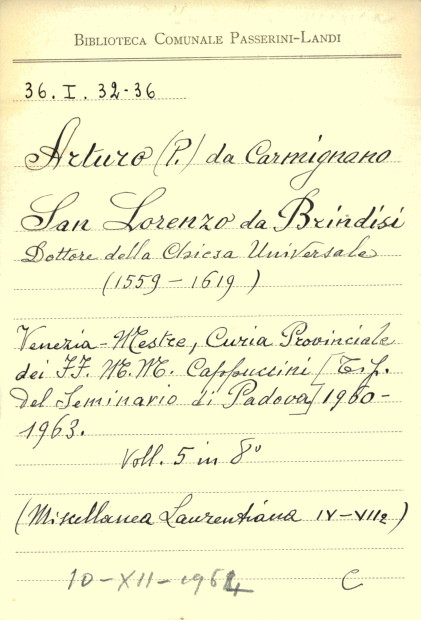 BIBLIOTECA COMUNALE PASSERINI-LANDI
36. I. 32-36
Arturo (P.) da Carmignano
San Lorenzo da Brindisi
Dottore della Chiesa Universale
(1559-1619)
Venezia-Mestre, Curia Provinciale
dei FF. M.M. Cappuccini [Tip.
del Seminario di Padova] 1960-
1963.
Voll. 5 in 8°
(Miscellanea Laurentiana IV-VII2)
10-XII-1964 C